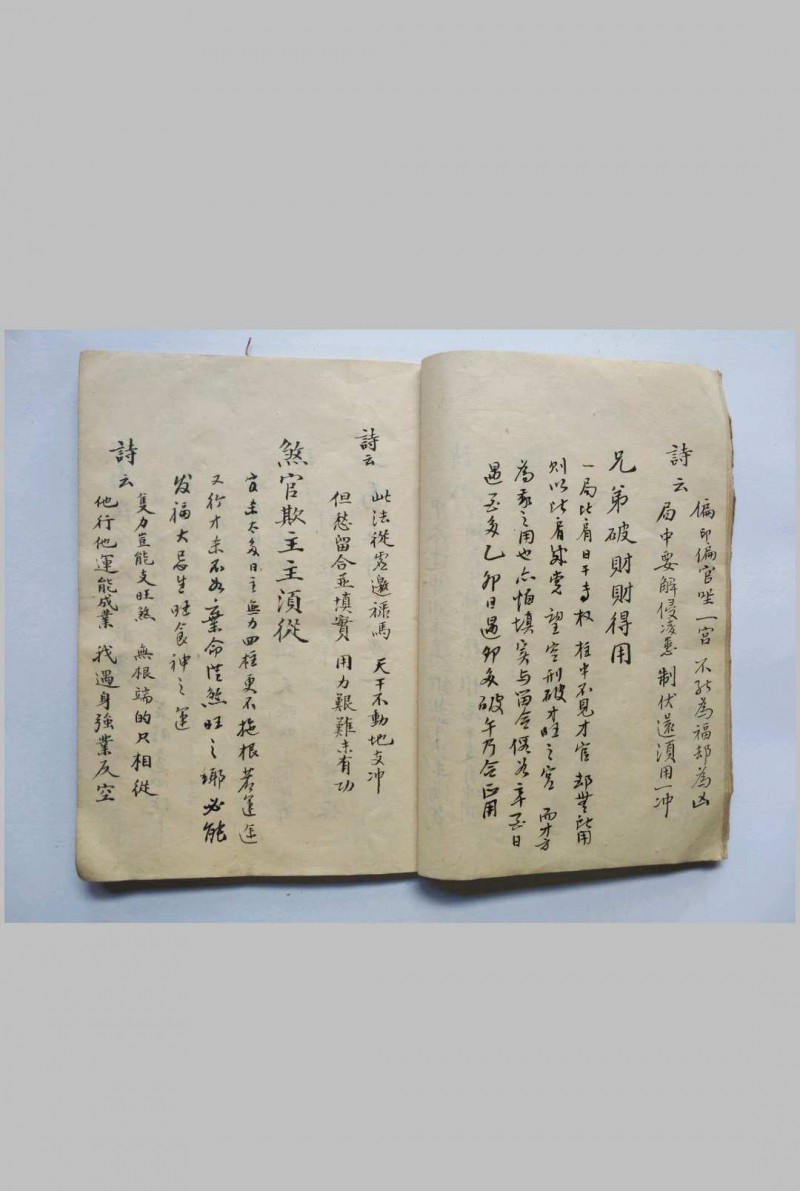 詩云
偏印偏官坐一宮 不能為福却為凶
局中要解侵凌患 制伏還須用一冲
兄弟破財財得用
一局比肩日干專权 柱中不見才官 却無所用
则以比肩 望空刑破才旺之宮 而才方
為我之用也 亦怕填实与留合 假如辛酉日
遇酉多 乙卯日遇卯多 破午乃合正用
詩云
此法從容邀禄馬 天干不動地支冲
但愁留合並填實 用力艱難未有功
煞官欺主主須從
官未太多 日主無力 四柱更不拖根 若運途
又行才未不如棄命從煞旺之鄉 必能
发福 大忌生旺食神之運
詩云
隻力豈能支旺煞 無根端的只相從
他行他運能成業 我遇身強業反空